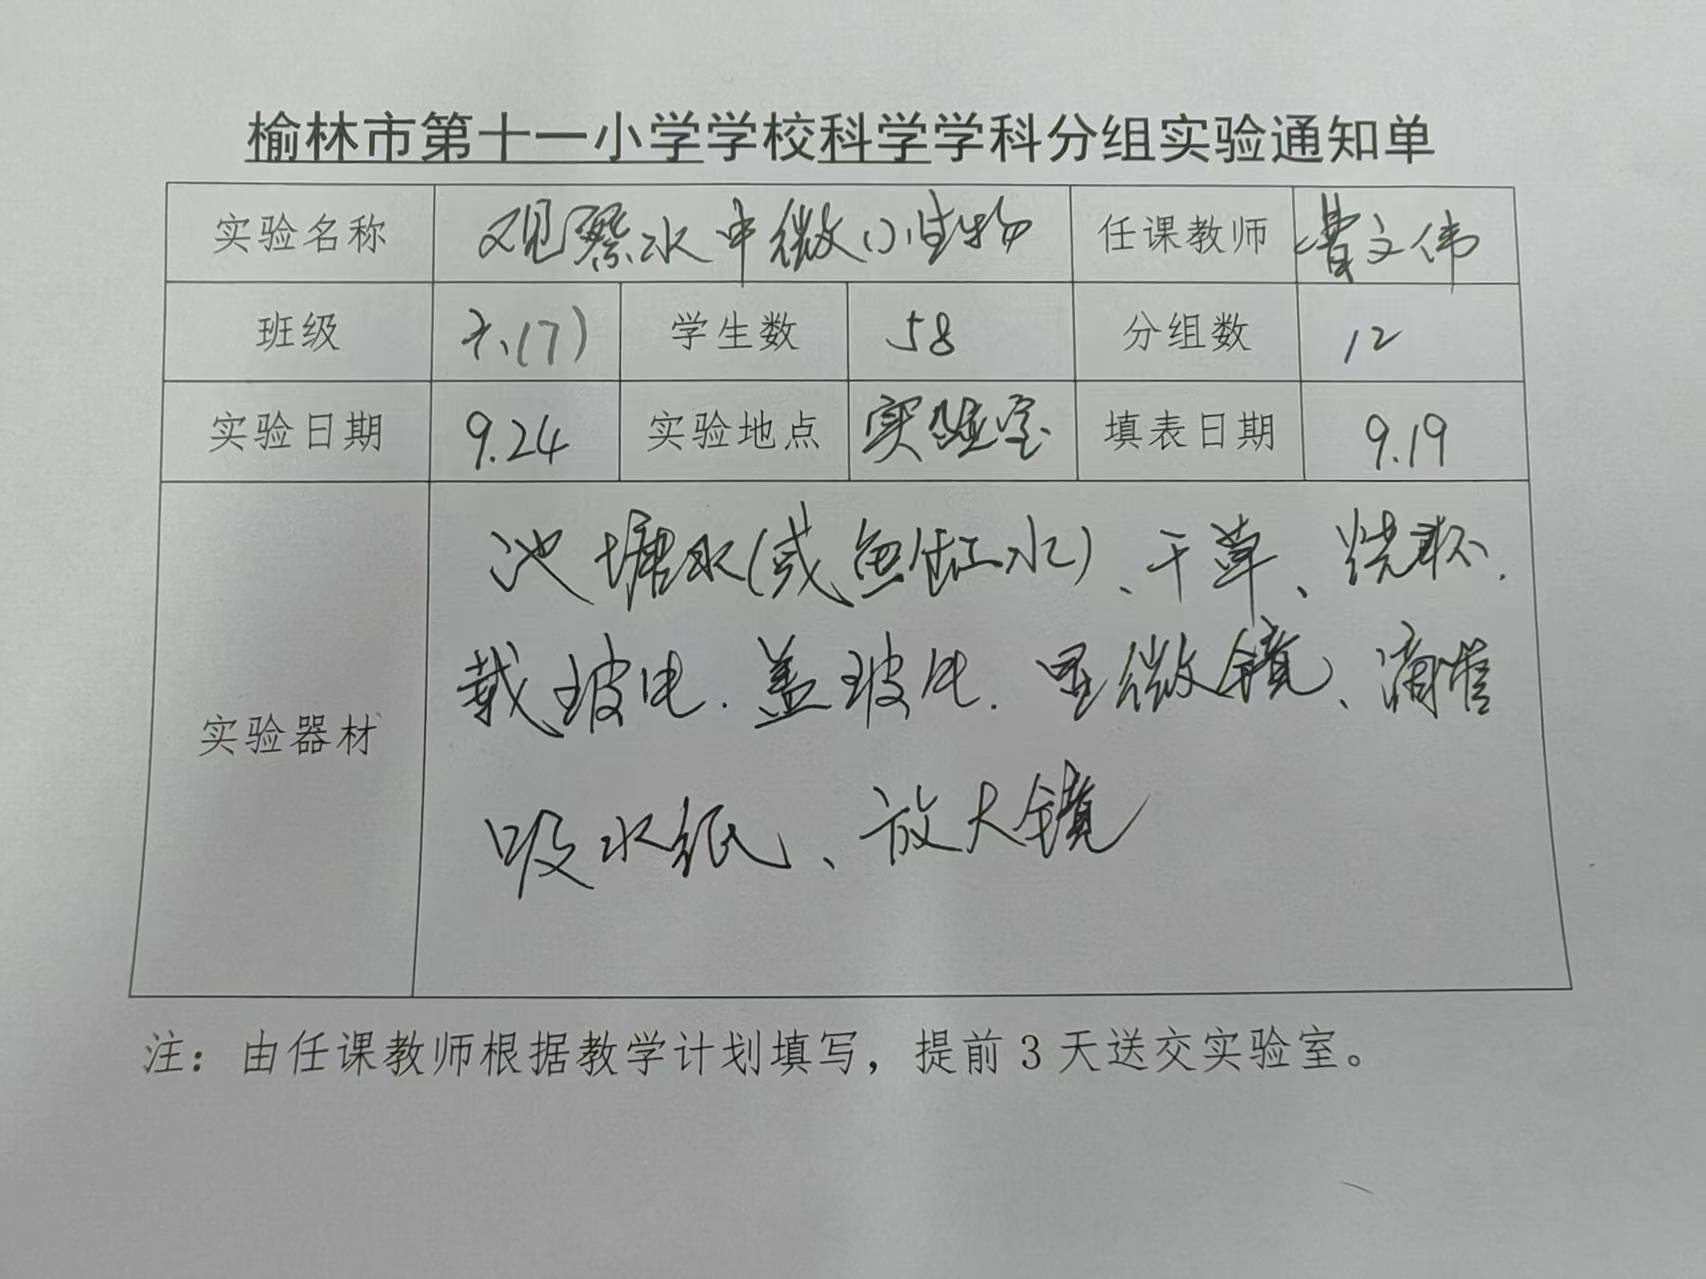 榆林市第十一小学学校科学学科分组实验通知单
实验名称 观察水中微小生物 任课教师 曹文伟
班级 六(7) 学生数 58 分组数 12
实验日期 9.24 实验地点 实验室 填表日期 9.19
实验器材
池塘水(或鱼缸水)、干草、烧杯、
载玻片、盖玻片、显微镜、滴管
吸水纸、放大镜
注：由任课教师根据教学计划填写，提前3天送交实验室。